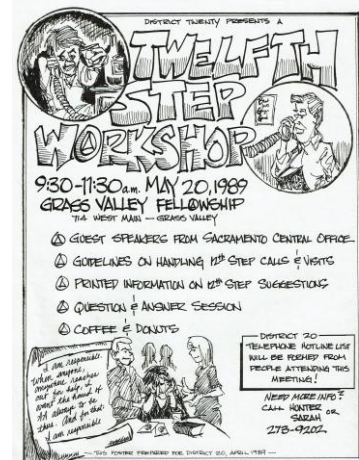 DISTRICT TWENTY PRESENTS A
TWELFTH
STEP
WORKSHOP
9:30-11:30 a.m. MAY 20, 1989
GRASS VALLEY FELLOWSHIP
714 WEST MAIN — GRASS VALLEY
GUEST SPEAKERS FROM SACRAMENTO CENTRAL OFFICE
GUIDELINES ON HANDLING 12th STEP CALLS & VISITS
PRINTED INFORMATION ON 12th STEP SUGGESTIONS
QUESTION & ANSWER SESSION
COFFEE & DONUTS
I am responsible.
When anyone, anywhere reaches
out for help, I
want the hand of
AA always to be
there. And for that:
I am responsible
DISTRICT 20
TELEPHONE HOTLINE LIST
WILL BE FORMED FROM
PEOPLE ATTENDING THIS
MEETING!
NEED MORE INFO?
CALL HUNTER OR
SARAH
273-9202
— THIS POSTER PREPARED FOR DISTRICT 20, APRIL 1989 —